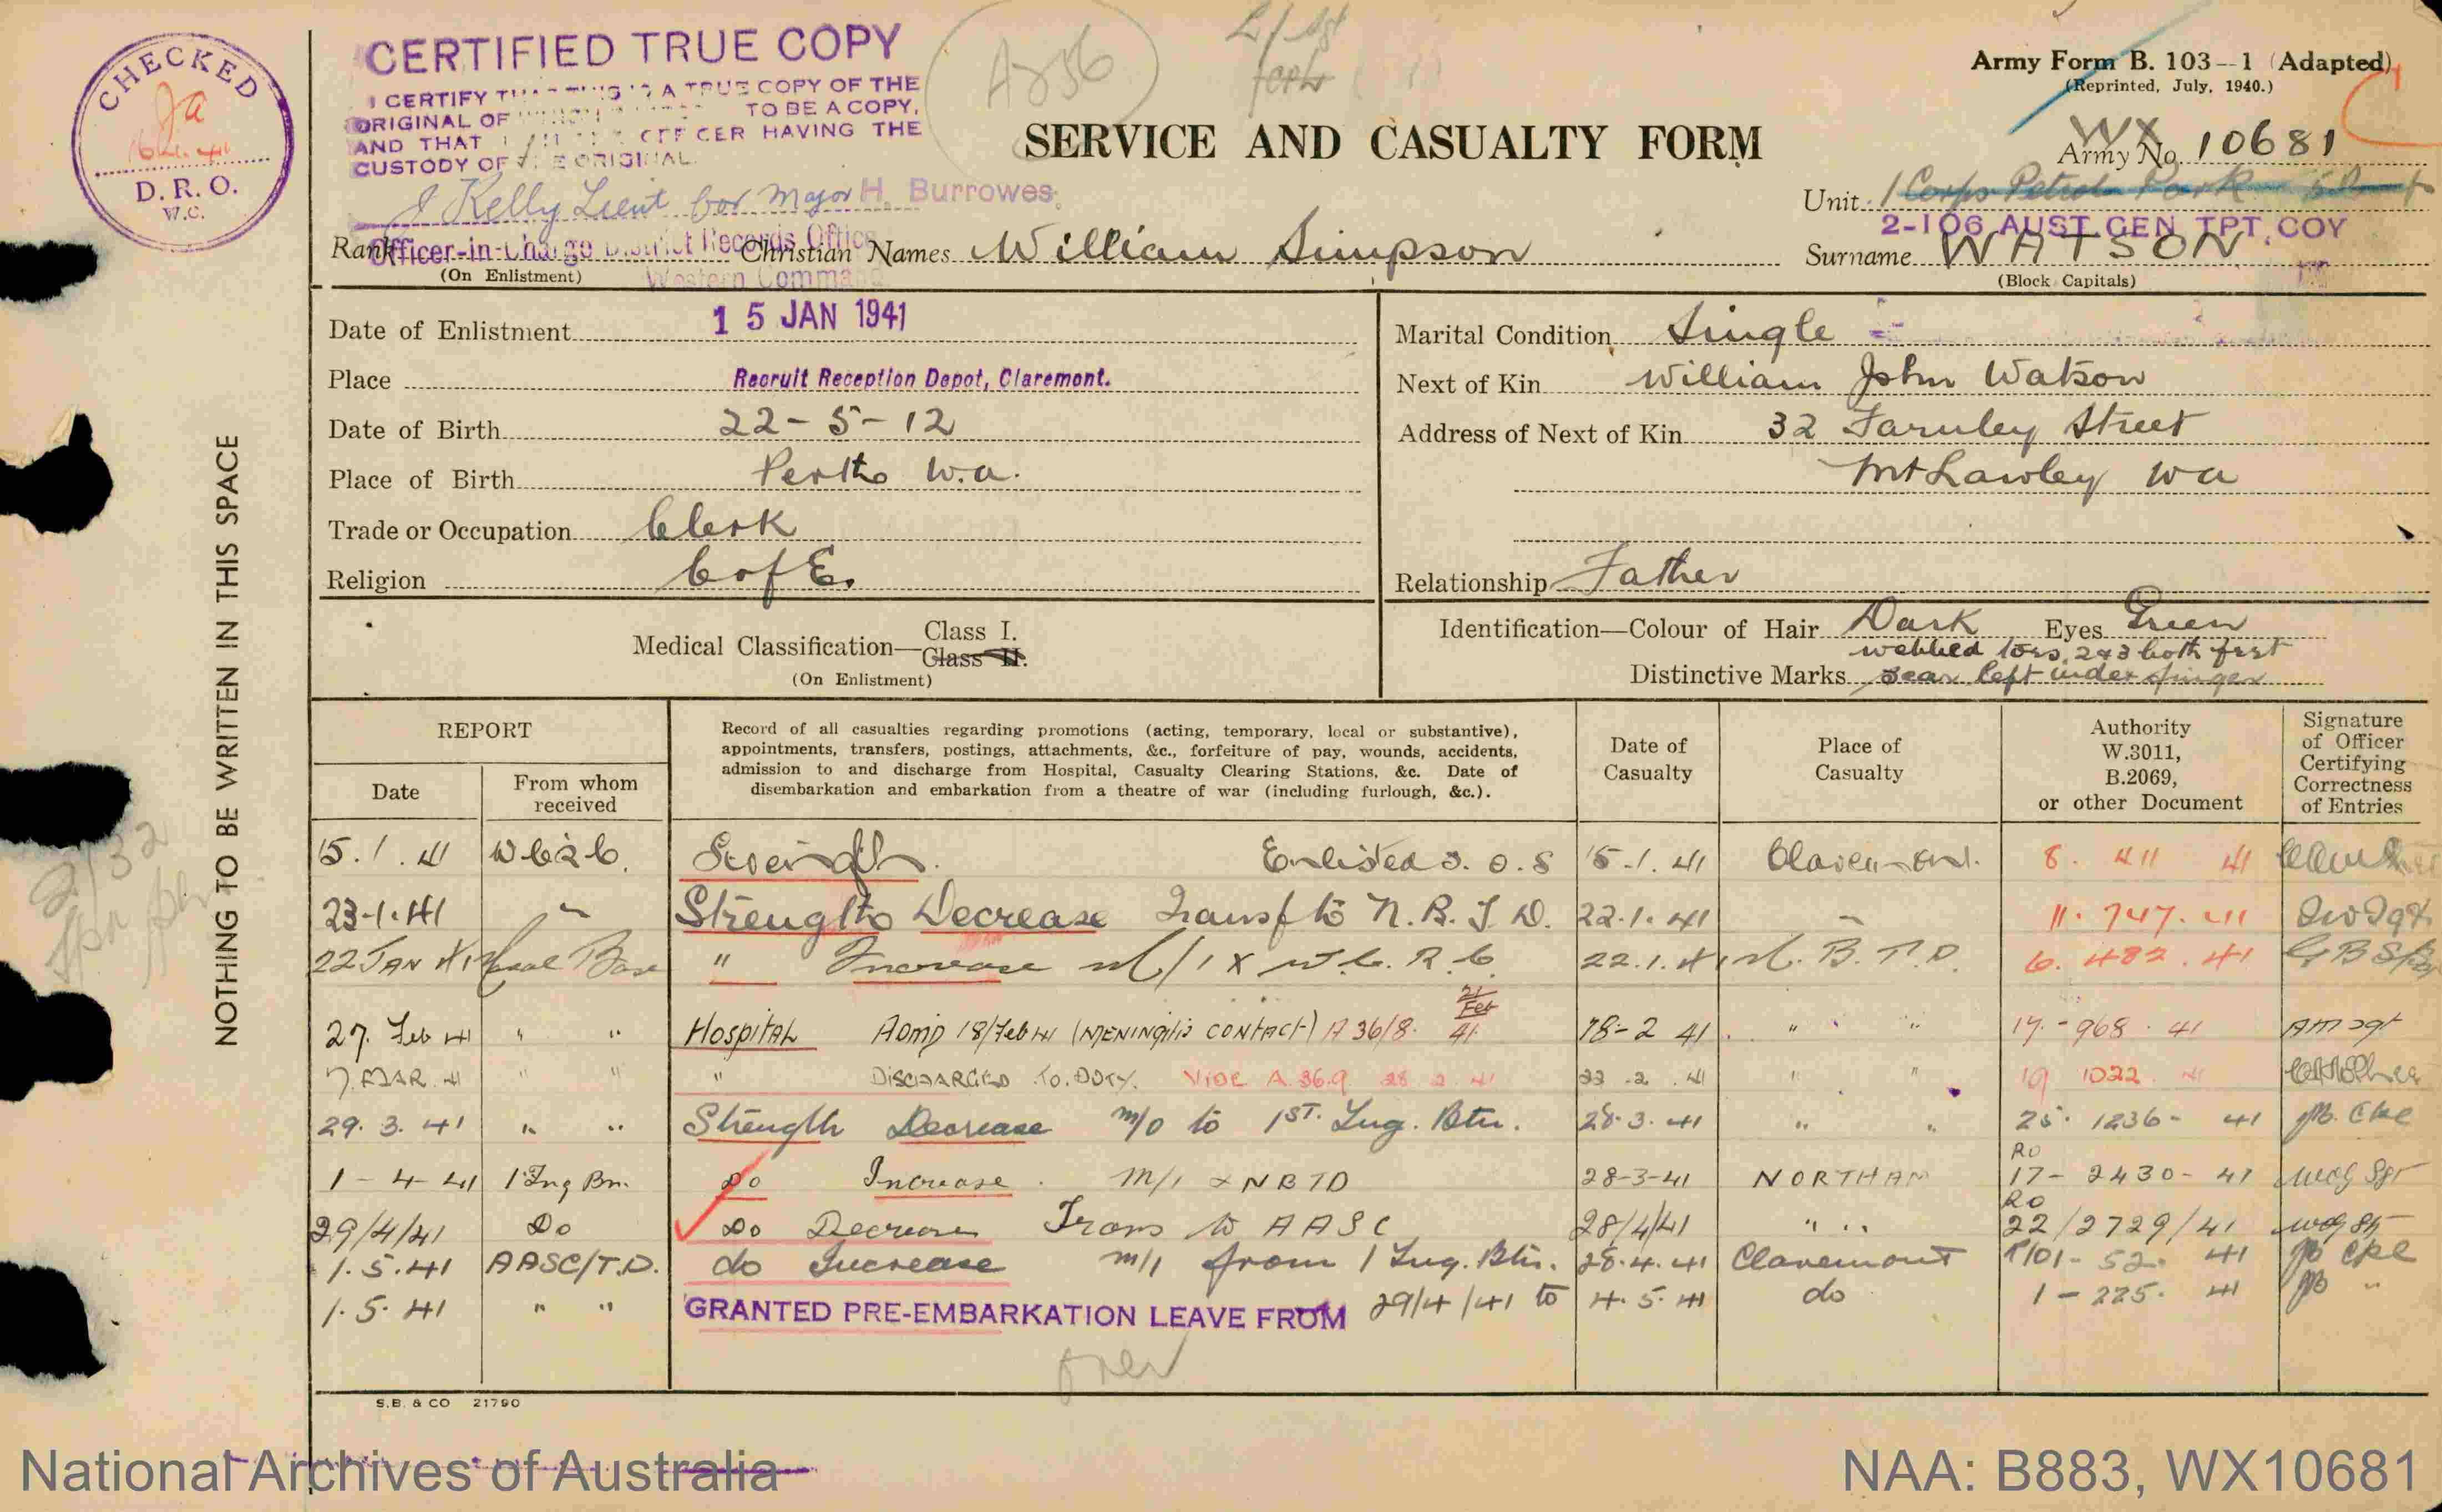 CHECKED
D. R. O.
W.C.
CERTIFIED TRUE COPY
I CERTIFY THIS A TRUE COPY OF THE
ORIGINAL OF TO BE A COPY,
AND THAT OFFICER HAVING THE
CUSTODY OF THE ORIGINAL
J Kelly Lieut for Major H. Burrowes
Officer-in-Charge District Records Office
Western Command
A856
Army Form B. 103—1 (Adapted)
(Reprinted, July, 1940.)
SERVICE AND CASUALTY FORM
WX
Army No. 10681
Unit 1 Corps Petrol Park
2-106 AUST GEN TPT COY
Rank Christian Names William Simpson Surname WATSON
(On Enlistment) (Block Capitals)
Date of Enlistment 15 JAN 1941
Place Recruit Reception Depot, Claremont.
Date of Birth 22-5-12
Place of Birth Perth W.a.
Trade or Occupation Clerk
Religion C of E.
Marital Condition Single
Next of Kin William John Watson
Address of Next of Kin 32 Farnley Street
Mt Lawley W a
Relationship Father
Medical Classification— Class I.
Class II.
(On Enlistment)
Identification—Colour of Hair Dark Eyes Green
webbed toes 2&3 both feet
Distinctive Marks scar left index finger
NOTHING TO BE WRITTEN IN THIS SPACE
REPORT
Date
From whom received
Record of all casualties regarding promotions (acting, temporary, local or substantive),
appointments, transfers, postings, attachments, &c., forfeiture of pay, wounds, accidents,
admission to and discharge from Hospital, Casualty Clearing Stations, &c. Date of
disembarkation and embarkation from a theatre of war (including furlough, &c.).
Date of Casualty
Place of Casualty
Authority W.3011, B.2069, or other Document
Signature of Officer Certifying Correctness of Entries
15.1.41 Strength. Enlisted 15.1.41 Claremont. 8. 411 41
23.1.41 " Strength Decrease Transf to N.B.T.D. 22.1.41 11. 747. 41
22 JAN 41 " Increase 22.1.41 N.B.T.D. 6. 482. 41
27. Feb 41 " " Hospital Admd 18/Feb 41 (MENINGitis CONTACT) A 36/8. 21 Feb 41 18-2 41 " " 17-968. 41
7. MAR. 41 " " " DISCHARGED TO DUTY. VIDE A.36.9 28 2 41 22.2.41 " " 19 1022 41
29. 3. 41 " " Strength Decrease m/o to 1ST. Ing. Btn. 28.3.41 " " 25. 1236- 41
1-4-41 1 Ing Bn. Do Increase. m/i x NBTD 28-3-41 NORTHAM RO 17-2430-41
29/4/41 Do Do Decrease Trans to AASC 28/4/41 " " RO 22/2729/41
1.5.41 AASC/T.D. do Increase m/i from 1 Ing. Btn. 28.4.41 Claremont 52. 41
1.5.41 " " GRANTED PRE-EMBARKATION LEAVE FROM 29/4/41 to 4.5.41 do 1-225. 41
over
S.B. & CO 21790
National Archives of Australia
NAA: B883, WX10681